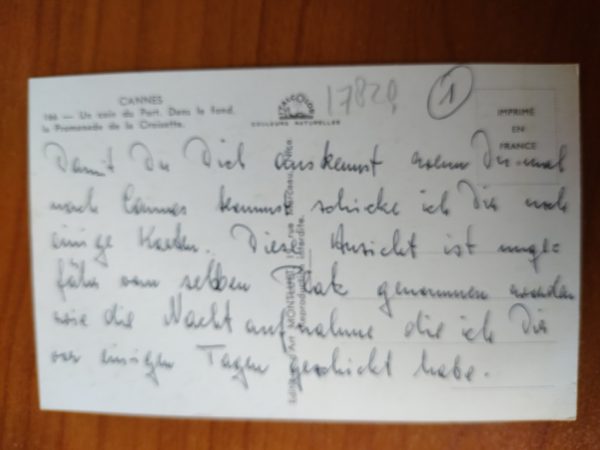 CANNES
166 — Un coin du Port. Dans le fond,
la Promenade de la Croisette.
COULEURS NATURELLES
17829
1
IMPRIMÉ
EN
FRANCE
Damit Du Dich auskennst wenn Du mal
nach Cannes kommst schicke ich Dir noch
einige Karten. Diese Ansicht ist unge=
fähr vom selben Platz genommen worden
wie die Nachtaufnahme die ich Dir
vor einigen Tagen geschickt habe.
Reproduction interdite.